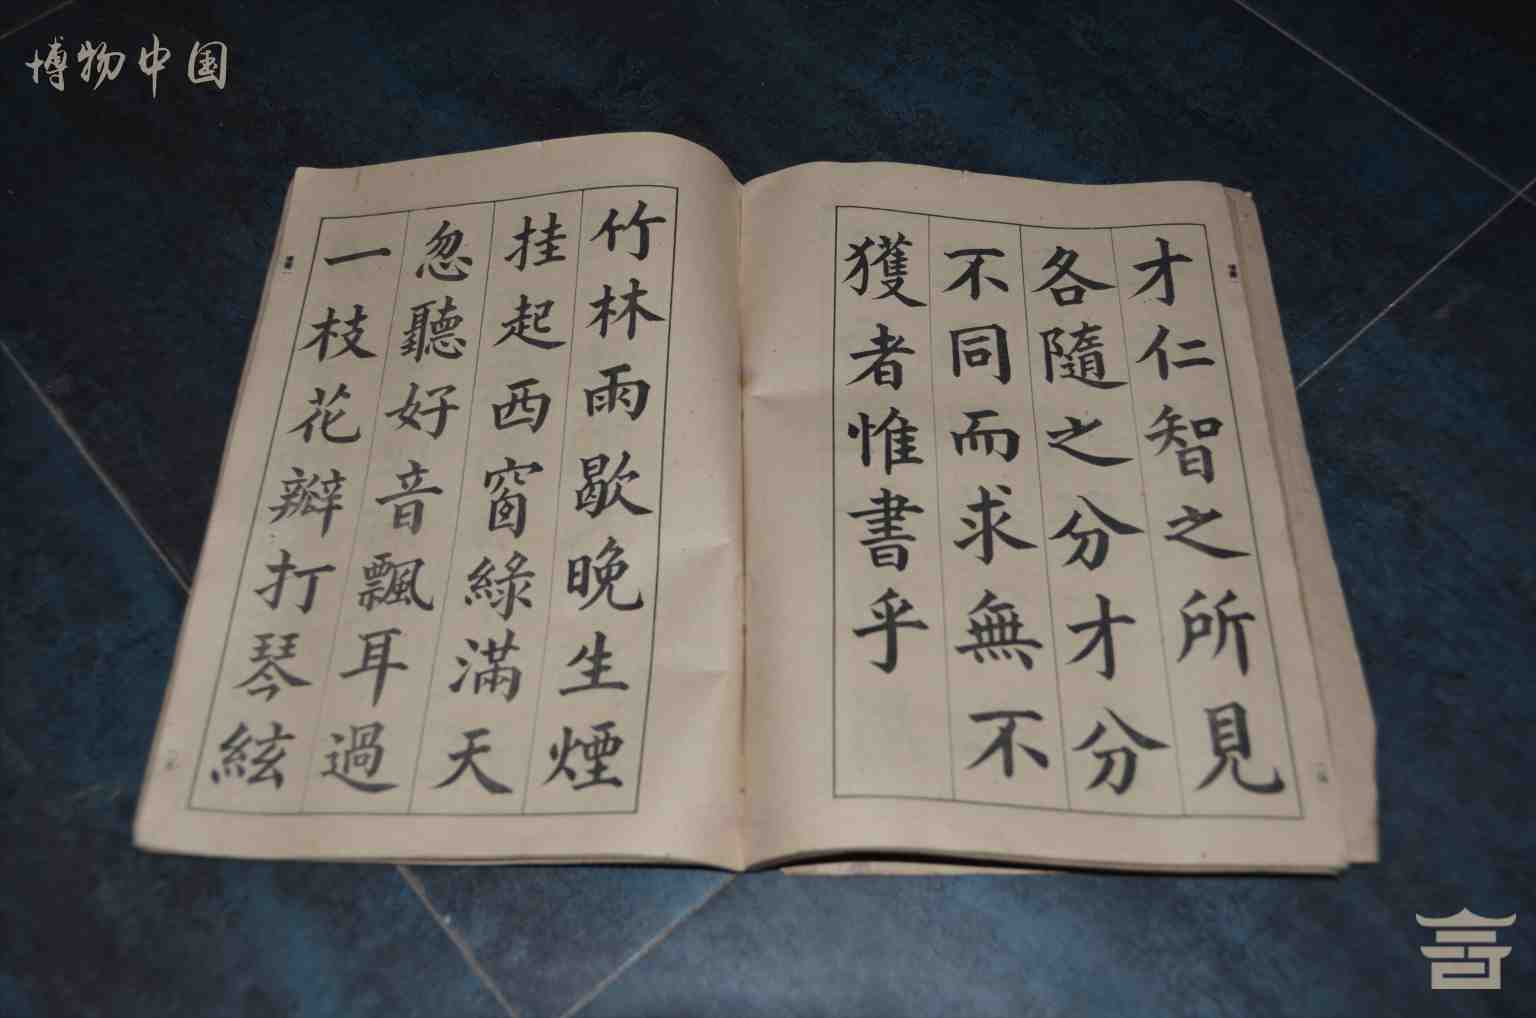 博物中国
才仁智之所見
各隨之分才分
不同而求無不
獲者惟書乎
竹林雨歇晚生煙
挂起西窗綠滿天
忽聽好音飄耳過
一枝花瓣打琴絃